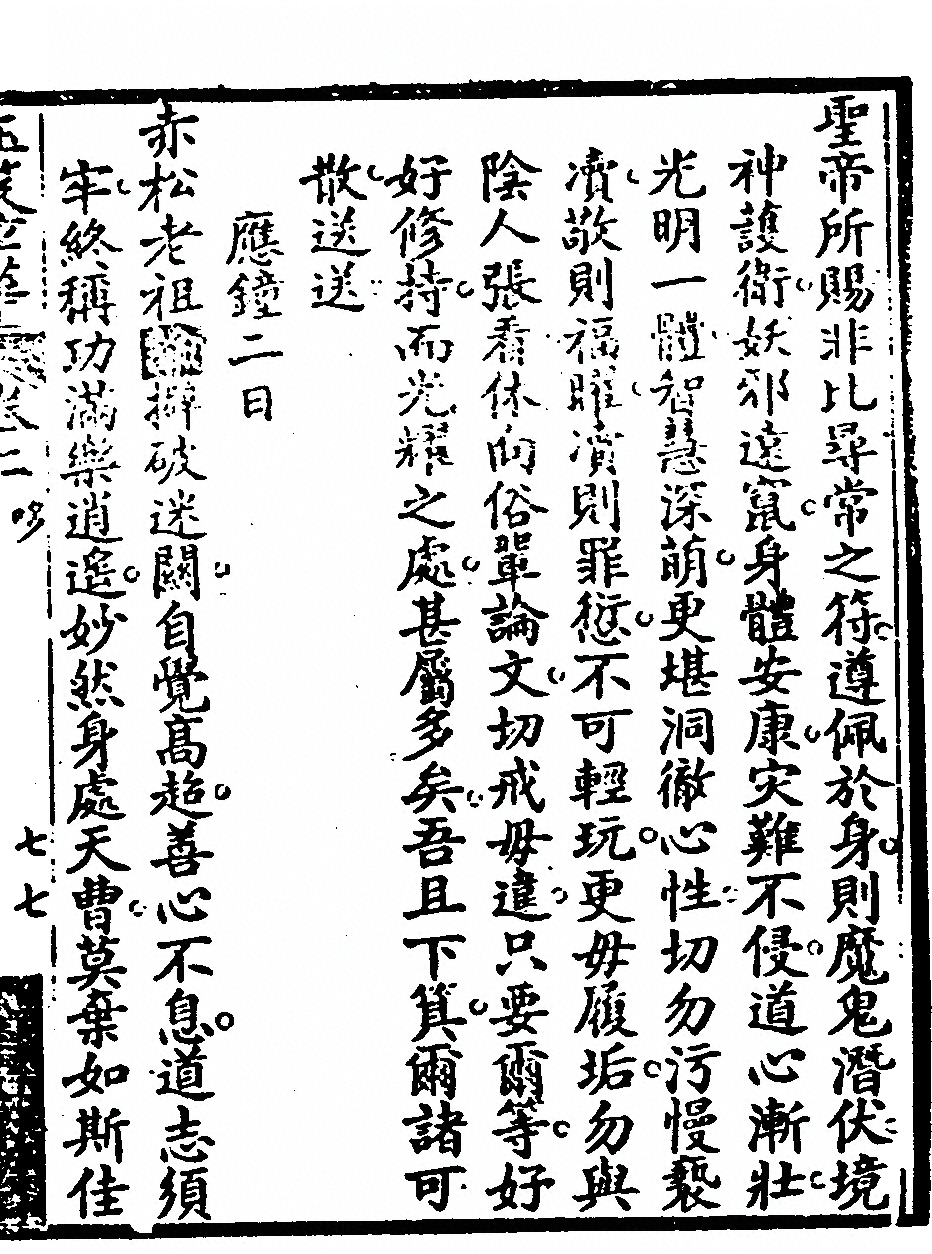 聖帝所賜非比尋常之符遵佩於身則魔鬼潛伏境
神護衛妖邪遠竄身體安康灾難不侵道心漸壯
光明一體智慧深萌更堪洞徹心性切勿污慢褻
瀆敬則福曜瀆則罪愆不可輕玩更毋履垢勿與
陰人張看休向俗輩論文切戒毋違只要爾等好
好修持而光耀之處甚屬多矣吾且下箕爾諸可
散送送
應鐘二日
赤松老祖諭擗破迷關自覺高超善心不息道志須
牢終稱功滿樂逍遙妙然身處天曹莫棄如斯佳
卷二
七七